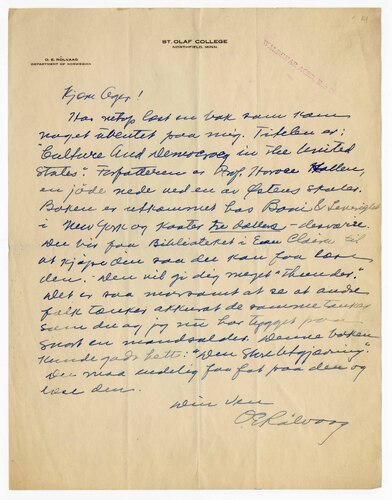 ST. OLAF COLLEGE
NORTHFIELD, MINN.
O. E. RÖLVAAG
DEPARTMENT OF NORWEGIAN
WALDEMAR AGER
Kjære Ager!
Har netop læst en bok som kom
noget uventet paa mig. Titelen er:
"Culture and Democracy in the United
States". Forfatteren er Prof. Horace Kallen,
en jøde nede ved en av Østens skoler.
Boken er utkommet hos Boni & Liveright
i New York og koster tre dollars - desværre.
Du bør faa Biblioteket i Eau Claire til
at kjøpe den saa du kan faa læse
den. Den vil gi dig meget "thunder".
Det er saa morsomt at se at andre
folk tænker akkurat de samme tanker
som du og jeg nu har tygget paa
snart en mandsalder. Denne boken
kunde godt hett: "Den Store Utgjævning".
Du maa endelig faa fat paa den og
læse den.
Din ven
O E Rölvaag